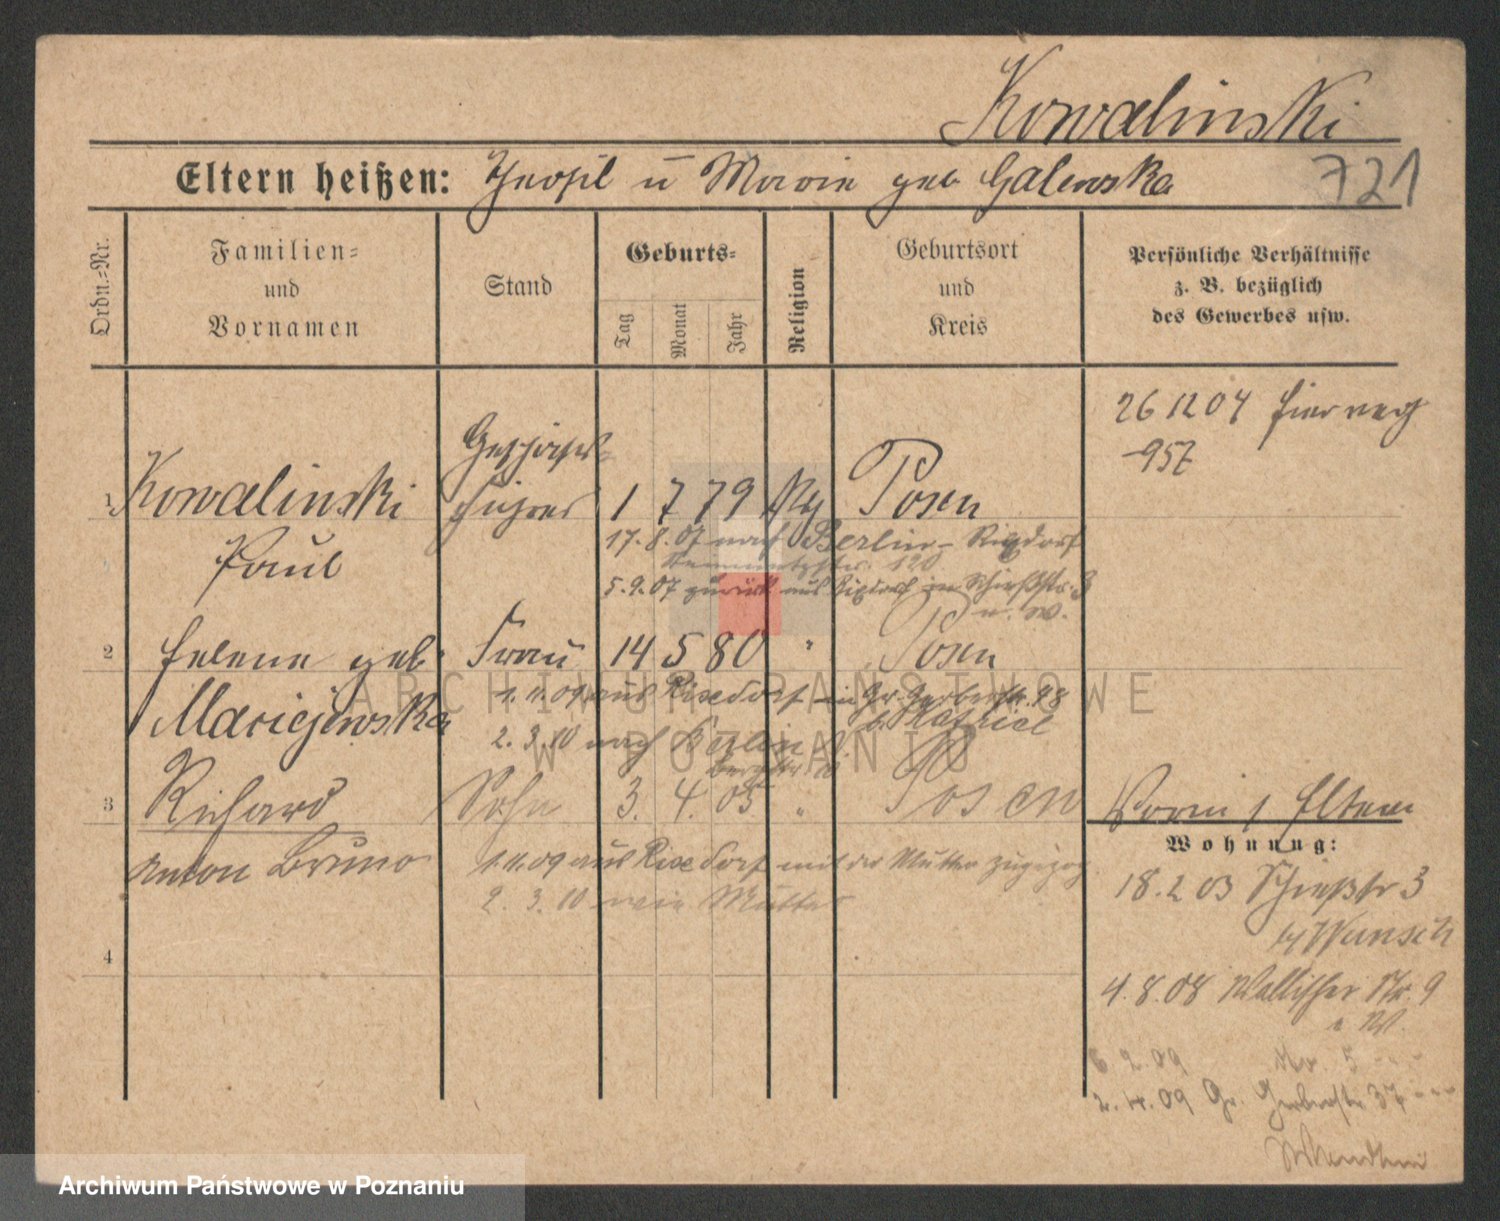 Kowalinski
Eltern heißen: Theofil u Marie geb Galewska
721
Ordn.-Nr.
Familien-
und
Vornamen
Stand
Geburts-
Tag
Monat
Jahr
Religion
Geburtsort
und
Kreis
Persönliche Verhältnisse
z. B. bezüglich
des Gewerbes usw.
26 12 04
957
Geschäfts
1 Kowalinski führer 1 7 79 Posen
Paul
17.8.07 nach Berlin-Rixdorf
120
5.9.07 zurück aus Rixdorf Schießstr. 3
u. W.
2 Helene geb. Frau 14 5 80 " Posen
Maciejewska
1.11.09 aus Rixdorf Gr. Gerberstr. 48
2.3.10 nach Berlin
3 Richard Sohn 3. 4. 05 " Posen
Anton Bruno
1.11.09 aus Rixdorf mit der Mutter zugezog
2.3.10 wie Mutter
4
Eltern
Wohnung:
18.2 03 Schießstr 3
Wunsch
4.8.08 Wallischei Str. 9
u. W.
6 2.09 No. 5
2.4.09 Gr. Gerberstr. 37
ARCHIWUM PAŃSTWOWE
W POZNANIU
Archiwum Państwowe w Poznaniu